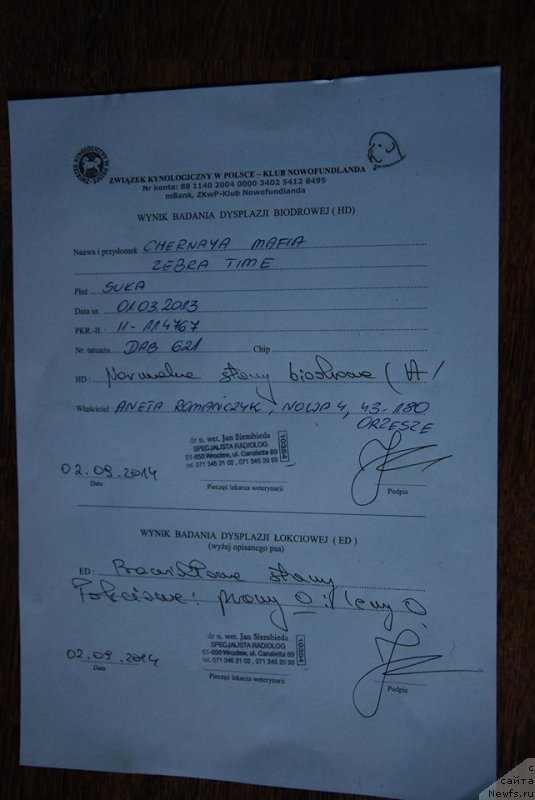 ZWIĄZEK KYNOLOGICZNY W POLSCE – KLUB NOWOFUNDLANDA
Nr konta: 88 1140 2004 0000 3402 5412 8495
mBank, ZKwP-Klub Nowofundlanda
WYNIK BADANIA DYSPLAZJI BIODROWEJ ( HD)
Nazwa i przydomek CHERNAYA MAFIA
ZEBRA TIME
Płeć SUKA
Data ur. 01.03.2013
PKR.-II. : II-114767
Nr. tatuażu DAB 621 Chip
HD : Normalne stawy biodrowe (A/
Właściciel: ANETA ROMAŃCZYK, NOWA 4, 43-180
ORZESZE
dr n. wet. Jan Siembieda
SPECJALISTA RADIOLOG
51-650 Wrocław, ul. Canaletta 89
tel. 071 345 21 02 , 071 345 20 99
10364
02.09.2014
Data
Pieczęć lekarza weterynarii
Podpis
WYNIK BADANIA DYSPLAZJI ŁOKCIOWEJ ( ED )
(wyżej opisanego psa)
ED : Prawidłowe stawy
łokciowe: prawy 0 i lewy 0
dr n. wet. Jan Siembieda
SPECJALISTA RADIOLOG
51-650 Wrocław, ul. Canaletta 89
tel. 071 345 21 02 , 071 345 20 99
10364
02.09.2014
Data
Pieczęć lekarza weterynarii
Podpis
с
сайта
Newfs.ru